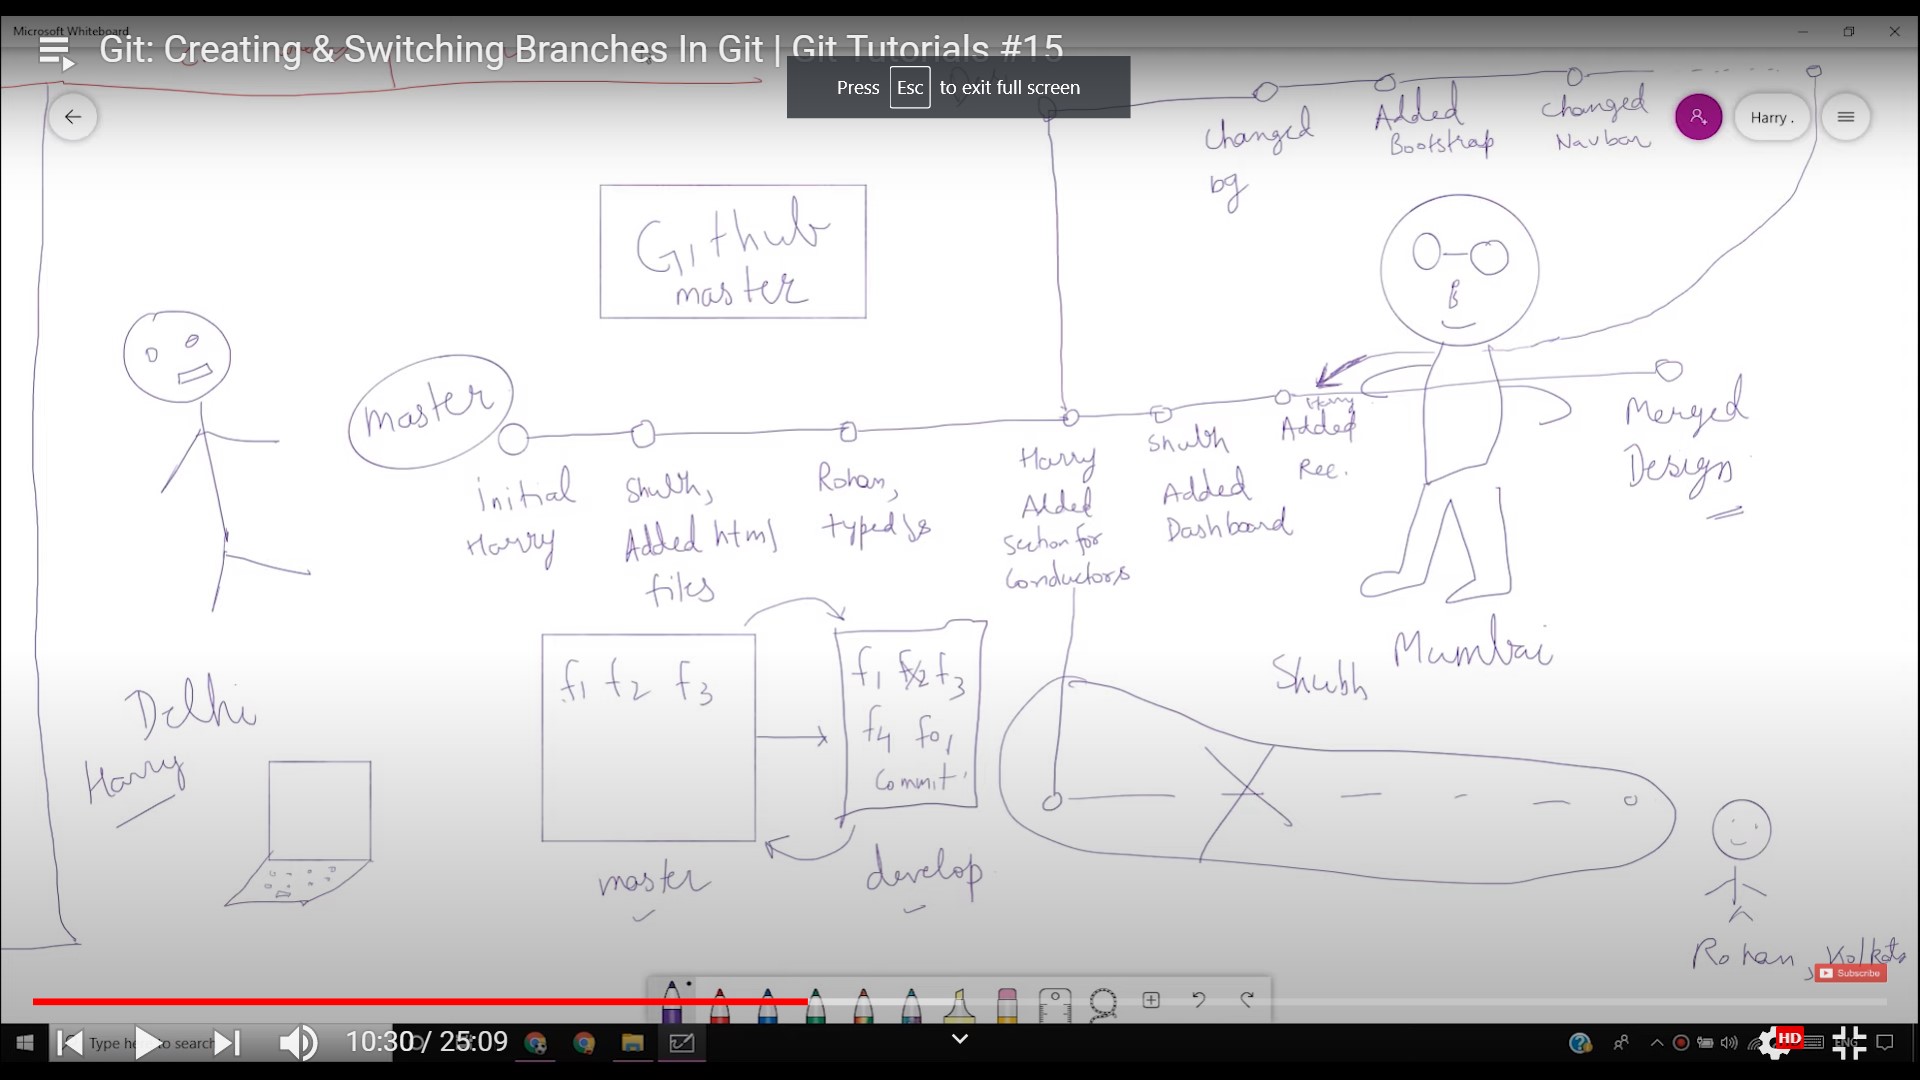 Microsoft Whiteboard
Git: Creating & Switching Branches In Git | Git Tutorials #15
Press Esc to exit full screen
Changed
bg
Added
Bootstrap
Changed
Navbar
Harry .
Github
master
master
Initial
Harry
Shubh,
Added html
files
Rohan,
typedjs
Harry
Added
section for
Conductors
Shubh
Added
Dashboard
Harry
Added
Rec.
Merged
Design
Delhi
Harry
f1 f2 f3
master
f1 f2 f3
f4 f01
Commit
develop
Shubh
Mumbai
Rohan, Kolkata
Subscribe
10:30 / 25:09
Type here to search
HD
ENG